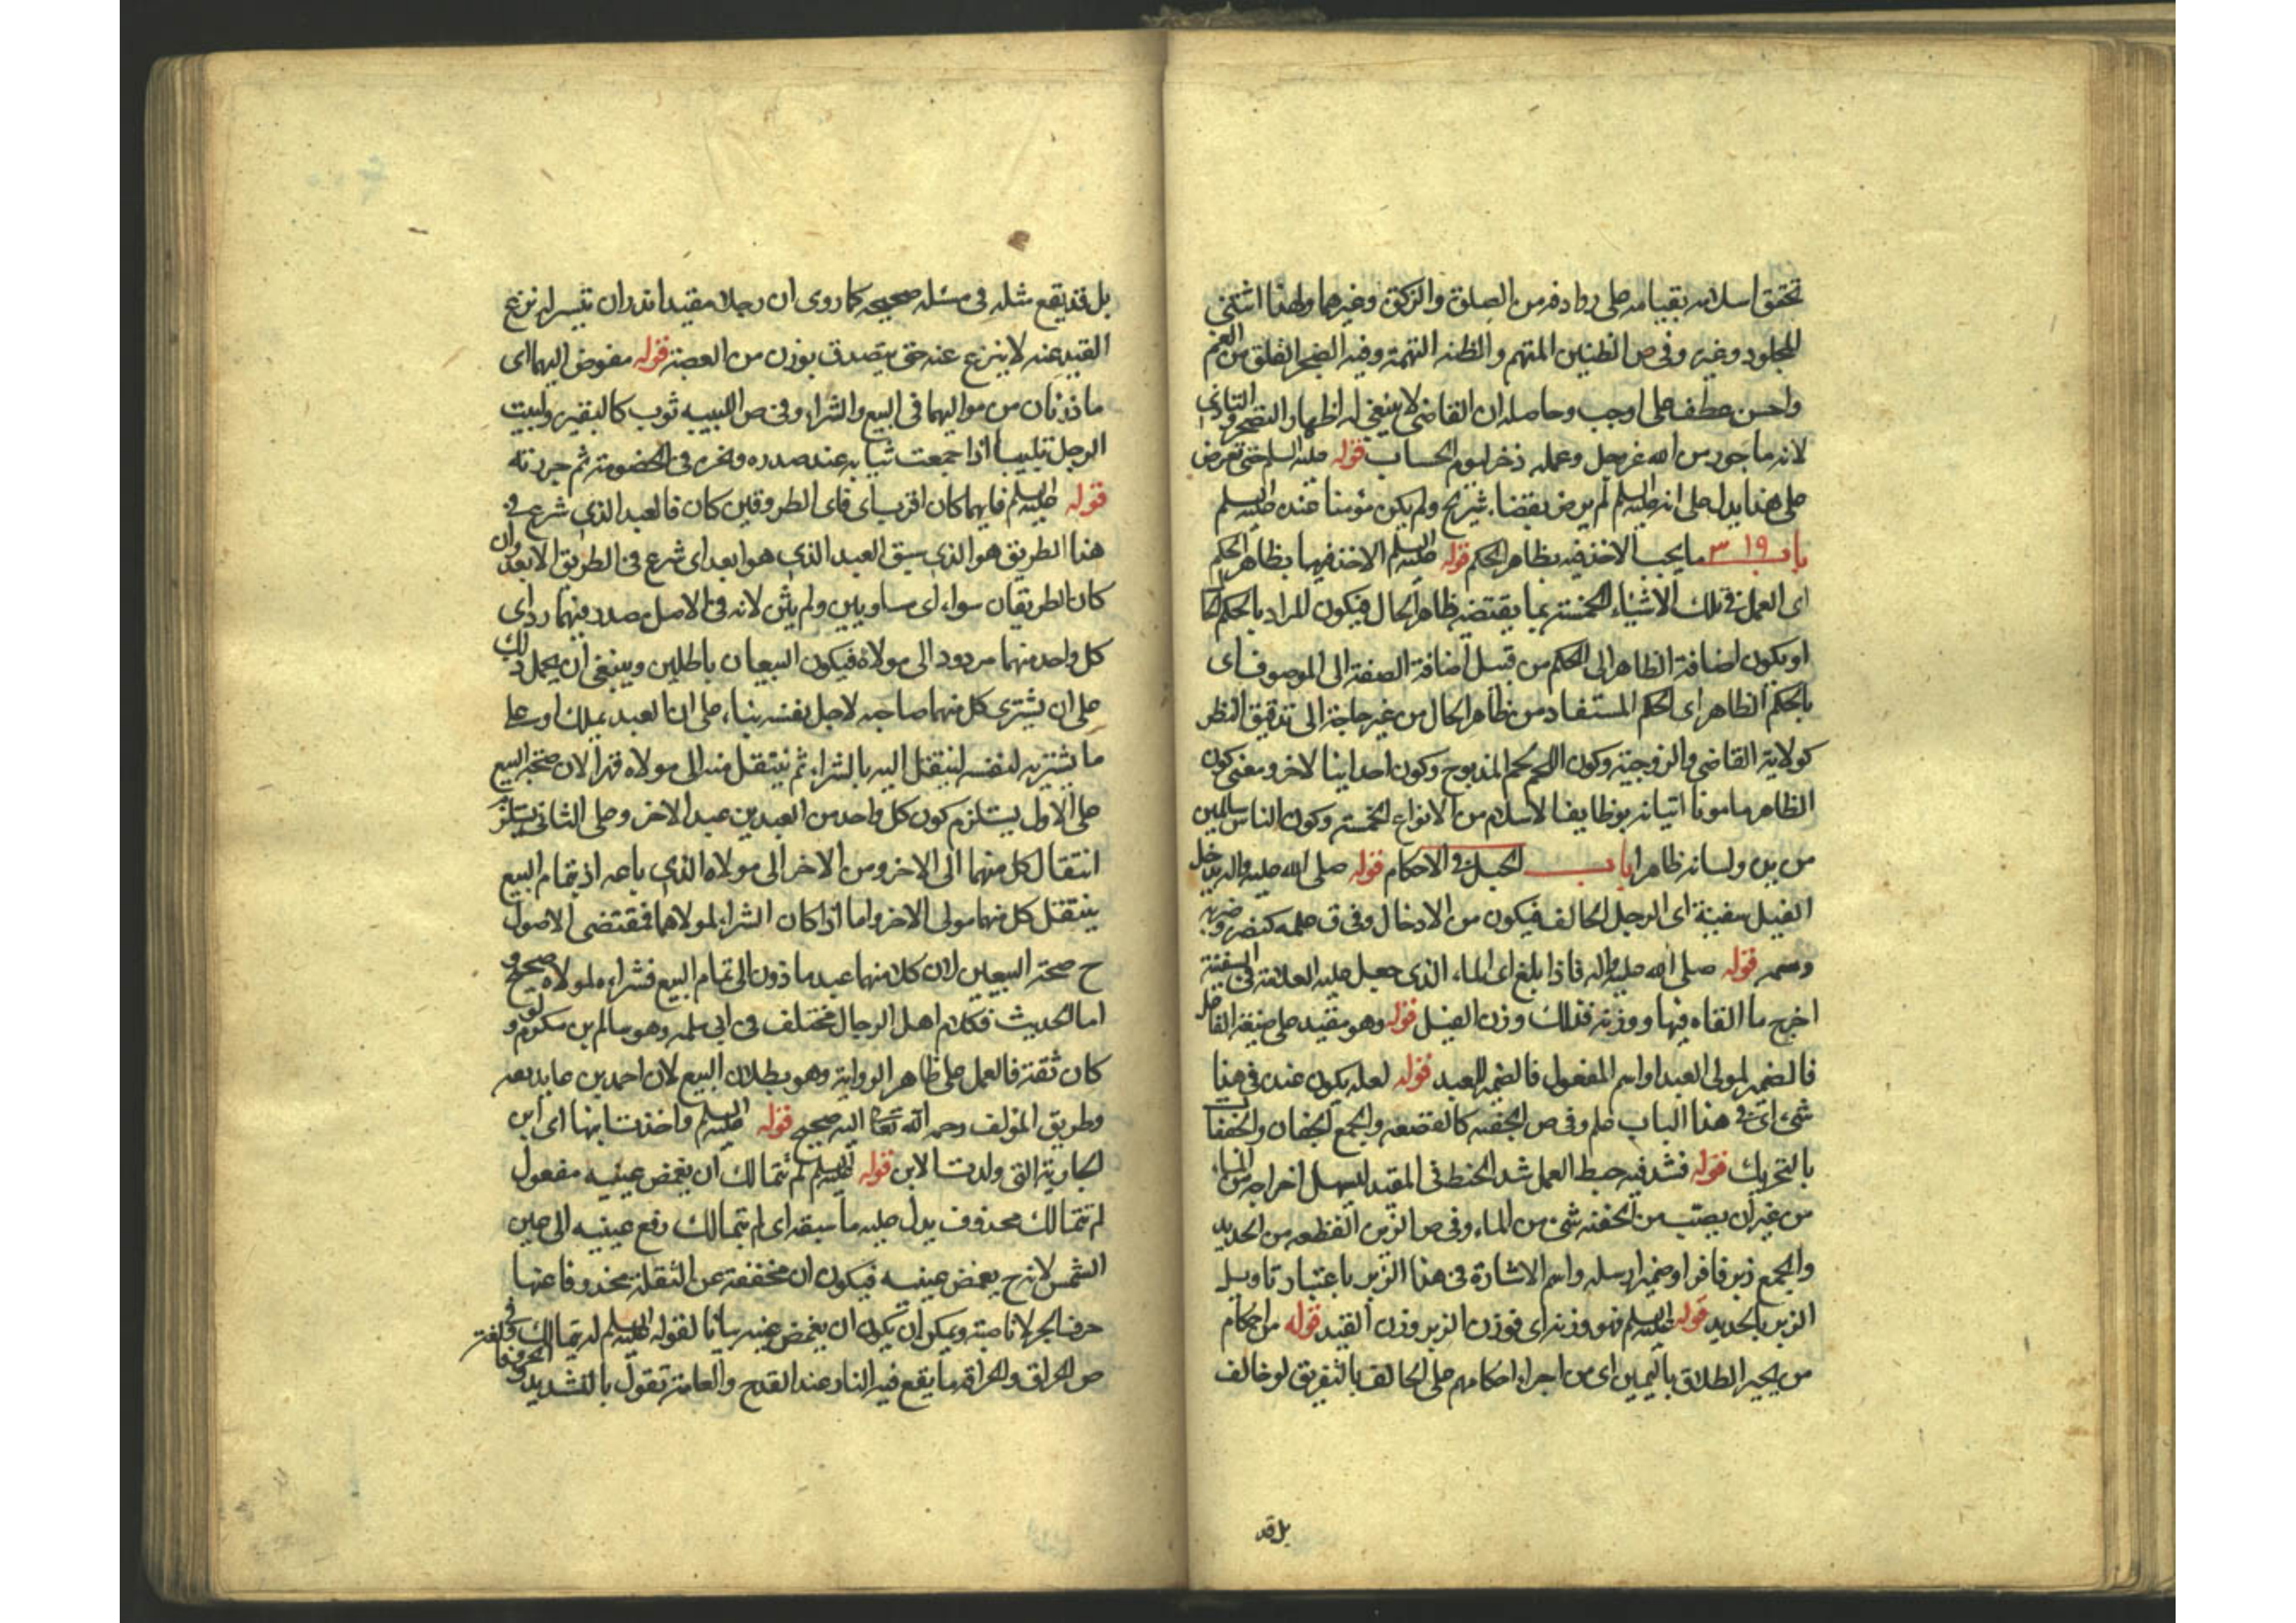 تحقق اسلامه بقيامه على روادفه من الصلوة والزكوة وغيرهما ولهذا اشتثنى
المجلود وغيره وفى ص الظنين المتهم والظنه التهمة وفيه الضجر القلق من الغم
واحسن عطف على اوجب وحاصله ان القاضى لا ينبغى له اظهار التضجر والتاذى
لانه ماجور من الله عز وجل وعمله ذخر ليوم الحساب قوله عليه السلم حتى تعرض
على هذا يدل على انه عليه السلم لم يرض بقضاء شريح ولم يكن مؤمنا عنده عليه السلم
باب ١٩ ٣ ما يجب الاخذ فيه بظاهر الحكم قوله عليه السلم الاخذ فيها بظاهر الحكم
اى العمل فى تلك الاشياء الخمسة بما يقتضيه ظاهر الحال فيكون المراد بالحكم الحا
او يكون اضافة الظاهر الى الحكم من قبيل اضافة الصفة الى الموصوف اى
بالحكم الظاهر اى الحكم المستفاد من ظاهر الحال من غير حاجة الى تدقيق النظر
كولاية القاضى والزوجية وكون اللحم لحم المذبوح وكون احد ابنا لاخر ومعنى كون
الظاهر مامونا اتيانه بوظايف الاسلام من الانواع الخمسة وكون الناس سالمين
من يده ولسانه ظاهرا باب الحيل فى الاحكام قوله صلى الله عليه واله يدخل
الفيل سفينة اى الرجل الحالف فيكون من الادخال وفى ق علمه كنصره وضربه
وسمه قوله صلى الله عليه واله فاذا بلغ اى الماء الذى جعل عليه العلامة فى السفينة
اخرج ما القاه فيها ووزنه فذلك وزن الفيل قوله وهو مقيد على صيغة الفاعل
فالضمير لمولى العبد او اسم المفعول فالضمير للعبد قوله لعله يكون عنده فى هذا
شئ اى فى هذا الباب علم وفى ص الجفنه كالقصعه والجمع الجفان والجفنا
بالتحريك قوله فشد فيه خيط العمل شد الخيط فى المقيد ليسهل اخراجه من الماء
من غير ان يصب من الجفنه شئ من الماء وفى ص الزبره القطعه من الحديد
والجمع زبر فافراد ضمير ارسله واسم الاشارة فى هذا الزبر باعتبار تاويل
الزبر بالحديد قوله عليه السلم فهو وزنه اى فوزن الزبر وزن القيد قوله من احكام
من يجيز الطلاق باليمين اى من اجراء احكامهم على الحالف بالتفريق لو خالف
بل قد
بل قد يقع مثله فى مسئله صحيحه كما روى ان رجلا مقيدا نذر ان تيسر له نزع
القيد عنه لا ينزع عنه حتى يتصدق بوزن من الفضة قوله مفوض اليهما اى
ماذونان من مواليهما فى البيع والشراء وفى ص اللبيبه ثوب كالبقير ولببت
الرجل تلبيبا اذا جمعت ثيابه عند صدره ونحره فى الخصومة ثم جررته
قوله عليه السلم فايهما كان اقرب اى فاى الطريقين كان فالعبد الذى شرع فى
هذا الطريق هو الذى سبق العبد الذى هو ابعد اى شرع فى الطريق الابعد وان
كان الطريقان سواء اى مساويين ولم يثن لانه فى الاصل مصدر فهما رد اى
كل واحد منهما مردود الى مولاه فيكون البيعان باطلين وينبغى ان يحمل ذلك
على ان يشترى كل منهما صاحبه لاجل نفسه بناء على ان العبد يملك او على
ما يشتريه لنفسه لينتقل اليه بالشراء ثم ينتقل منه الى مولاه قهرا لان صحة البيع
على الاول يستلزم كون كل واحد من العبدين عبد الاخر وعلى الثانى يستلزم
انتقال كل منهما الى الاخر ومن الاخر الى مولاه الذى باعه اذ بتمام البيع
ينتقل كل منهما مولى الاخر واما اذا كان الشراء لمولاهما فمقتضى الاصول
ح صحة البيعين لان كلا منهما عبد ماذون الى تمام البيع فشراءه لمولاه صحيح و
اما الحديث فكلام اهل الرجال مختلف فى ابى سلمه وهو سالم بن مكرم ولو
كان ثقة فالعمل على ظاهر الرواية وهو بطلان البيع لان احمد بن عايذ ثقه
وطريق المؤلف رحمه الله تعا اليه صحيح قوله عليه السلم واخذت ابنها اى ابن
الجارية التى ولدت الابن قوله عليه السلم لم تتمالك ان يغمض عينيه مفعول
لم تتمالك محذوف يدل عليه ما سبقه اى لم تتمالك رفع عينيه الى عين
الشمس لانه ح يغمض عينيه فيكون ان مخففة عن الثقلة محذوفا عنها
حرف الجر لا ناصبة ويمكن ان يكون ان يغمض عينيه بيانا لقوله عليه السلم لم تتمالك وفى
ص الحراق والحراقه ما يقع فيه النار عند القدح والعامة تقول بالتشديد